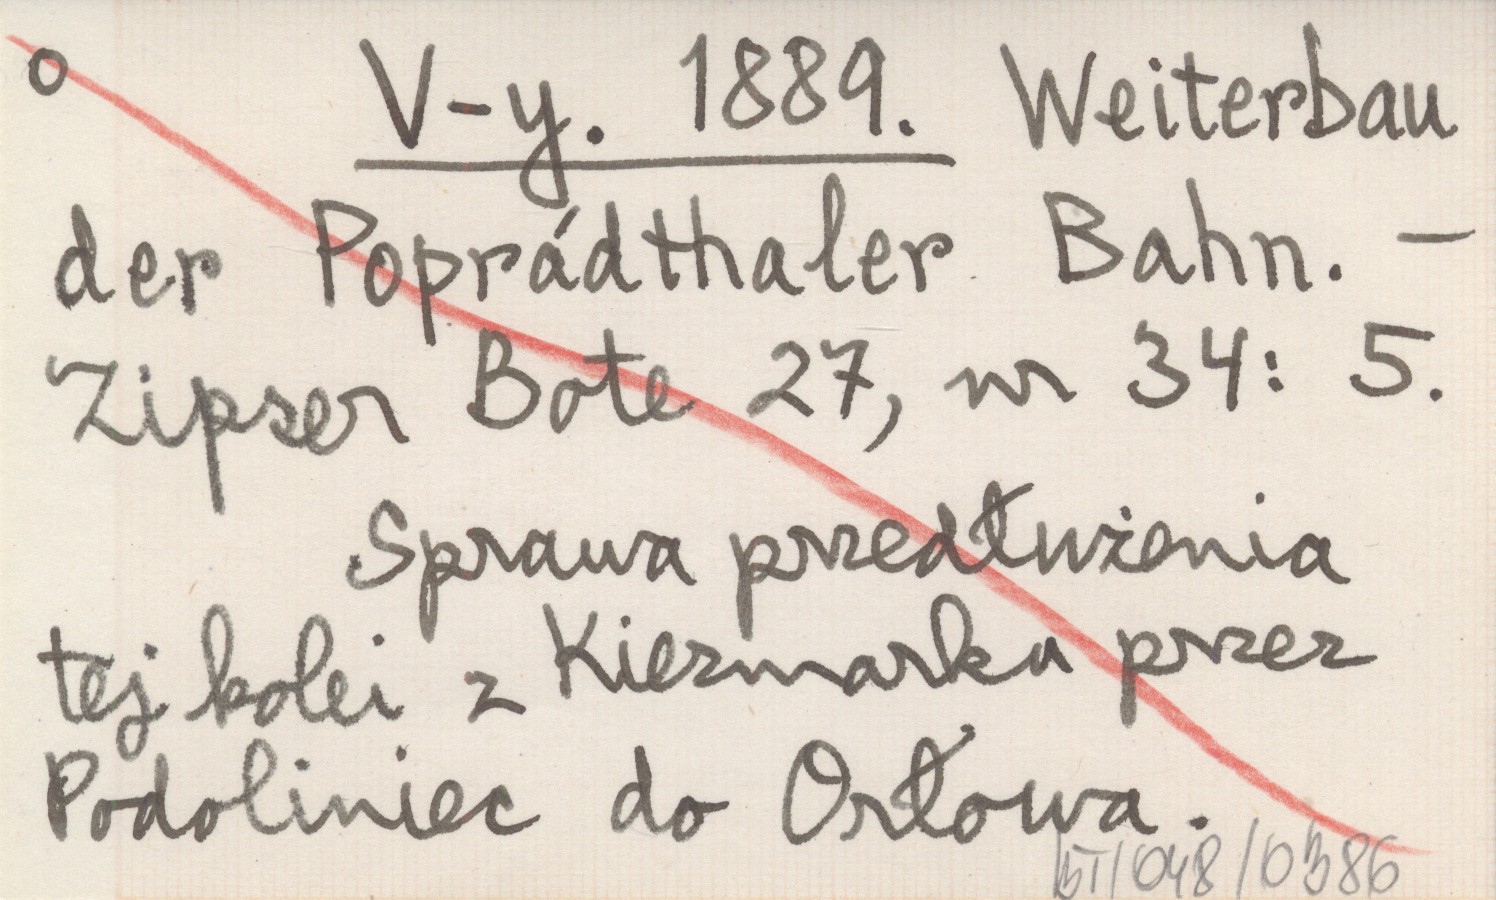 o V-y. 1889. Weiterbau
der Poprádthaler Bahn. –
Zipser Bote 27, nr 34: 5.
Sprawa przedłużenia
tej kolei z Kiezmarka przez
Podoliniec do Orłowa.
BT/048/0386